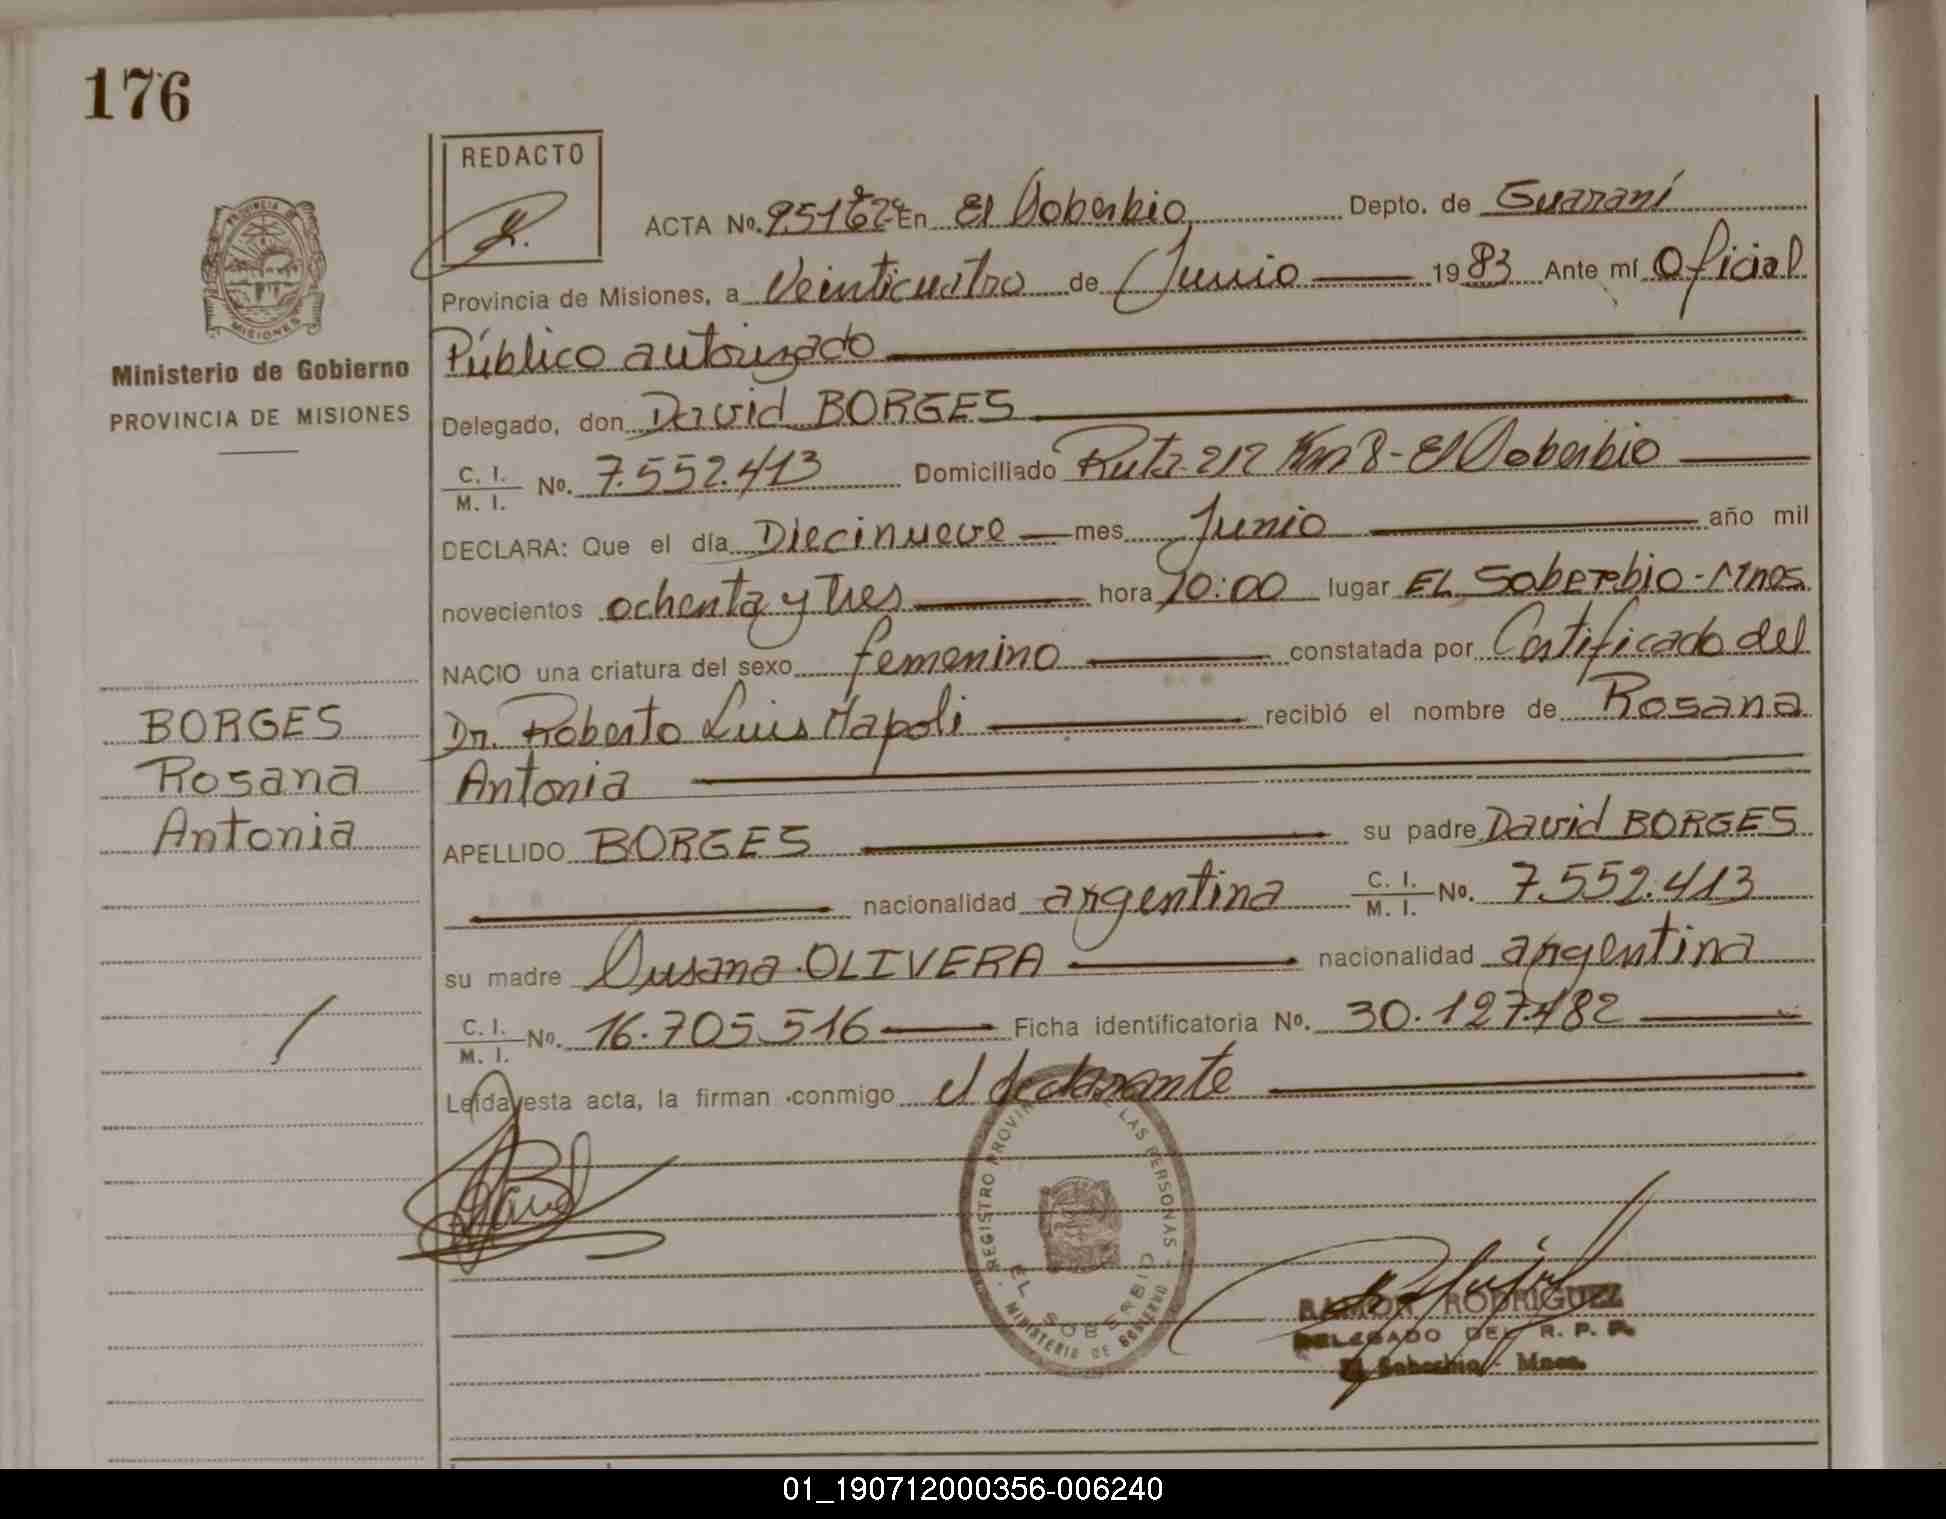 176
REDACTO
ACTA No. En El Soberbio Depto. de Guaraní
Provincia de Misiones, a Veinticuatro de Junio 1983 Ante mí Oficial
Público autorizado
Ministerio de Gobierno
PROVINCIA DE MISIONES
Delegado, don David BORGES
C. I. M. I. No. 7.552.413 Domiciliado Ruta 212 Km 8 - El Soberbio
DECLARA: Que el día Diecinueve mes Junio año mil
novecientos ochenta y tres hora 10:00 lugar EL Soberbio - Mnes
NACIO una criatura del sexo femenino constatada por Certificado del
Dr. Roberto Luis Napoli recibió el nombre de Rosana
Antonia
BORGES
Rosana
Antonia
APELLIDO BORGES su padre David BORGES
nacionalidad argentina C. I. M. I. No. 7.552.413
su madre Susana OLIVERA nacionalidad argentina
C. I. M. I. No. 16.705.516 Ficha identificatoria No. 30.127.482
Leída esta acta, la firman conmigo el declarante
REGISTRO PROVIN LAS PERSONAS
EL SOBERBIO
MINISTERIO DE GOBIERNO
RAMON RODRIGUEZ
DELEGADO DEL R. P. P.
El Soberbio - Mnes.
01_190712000356-006240